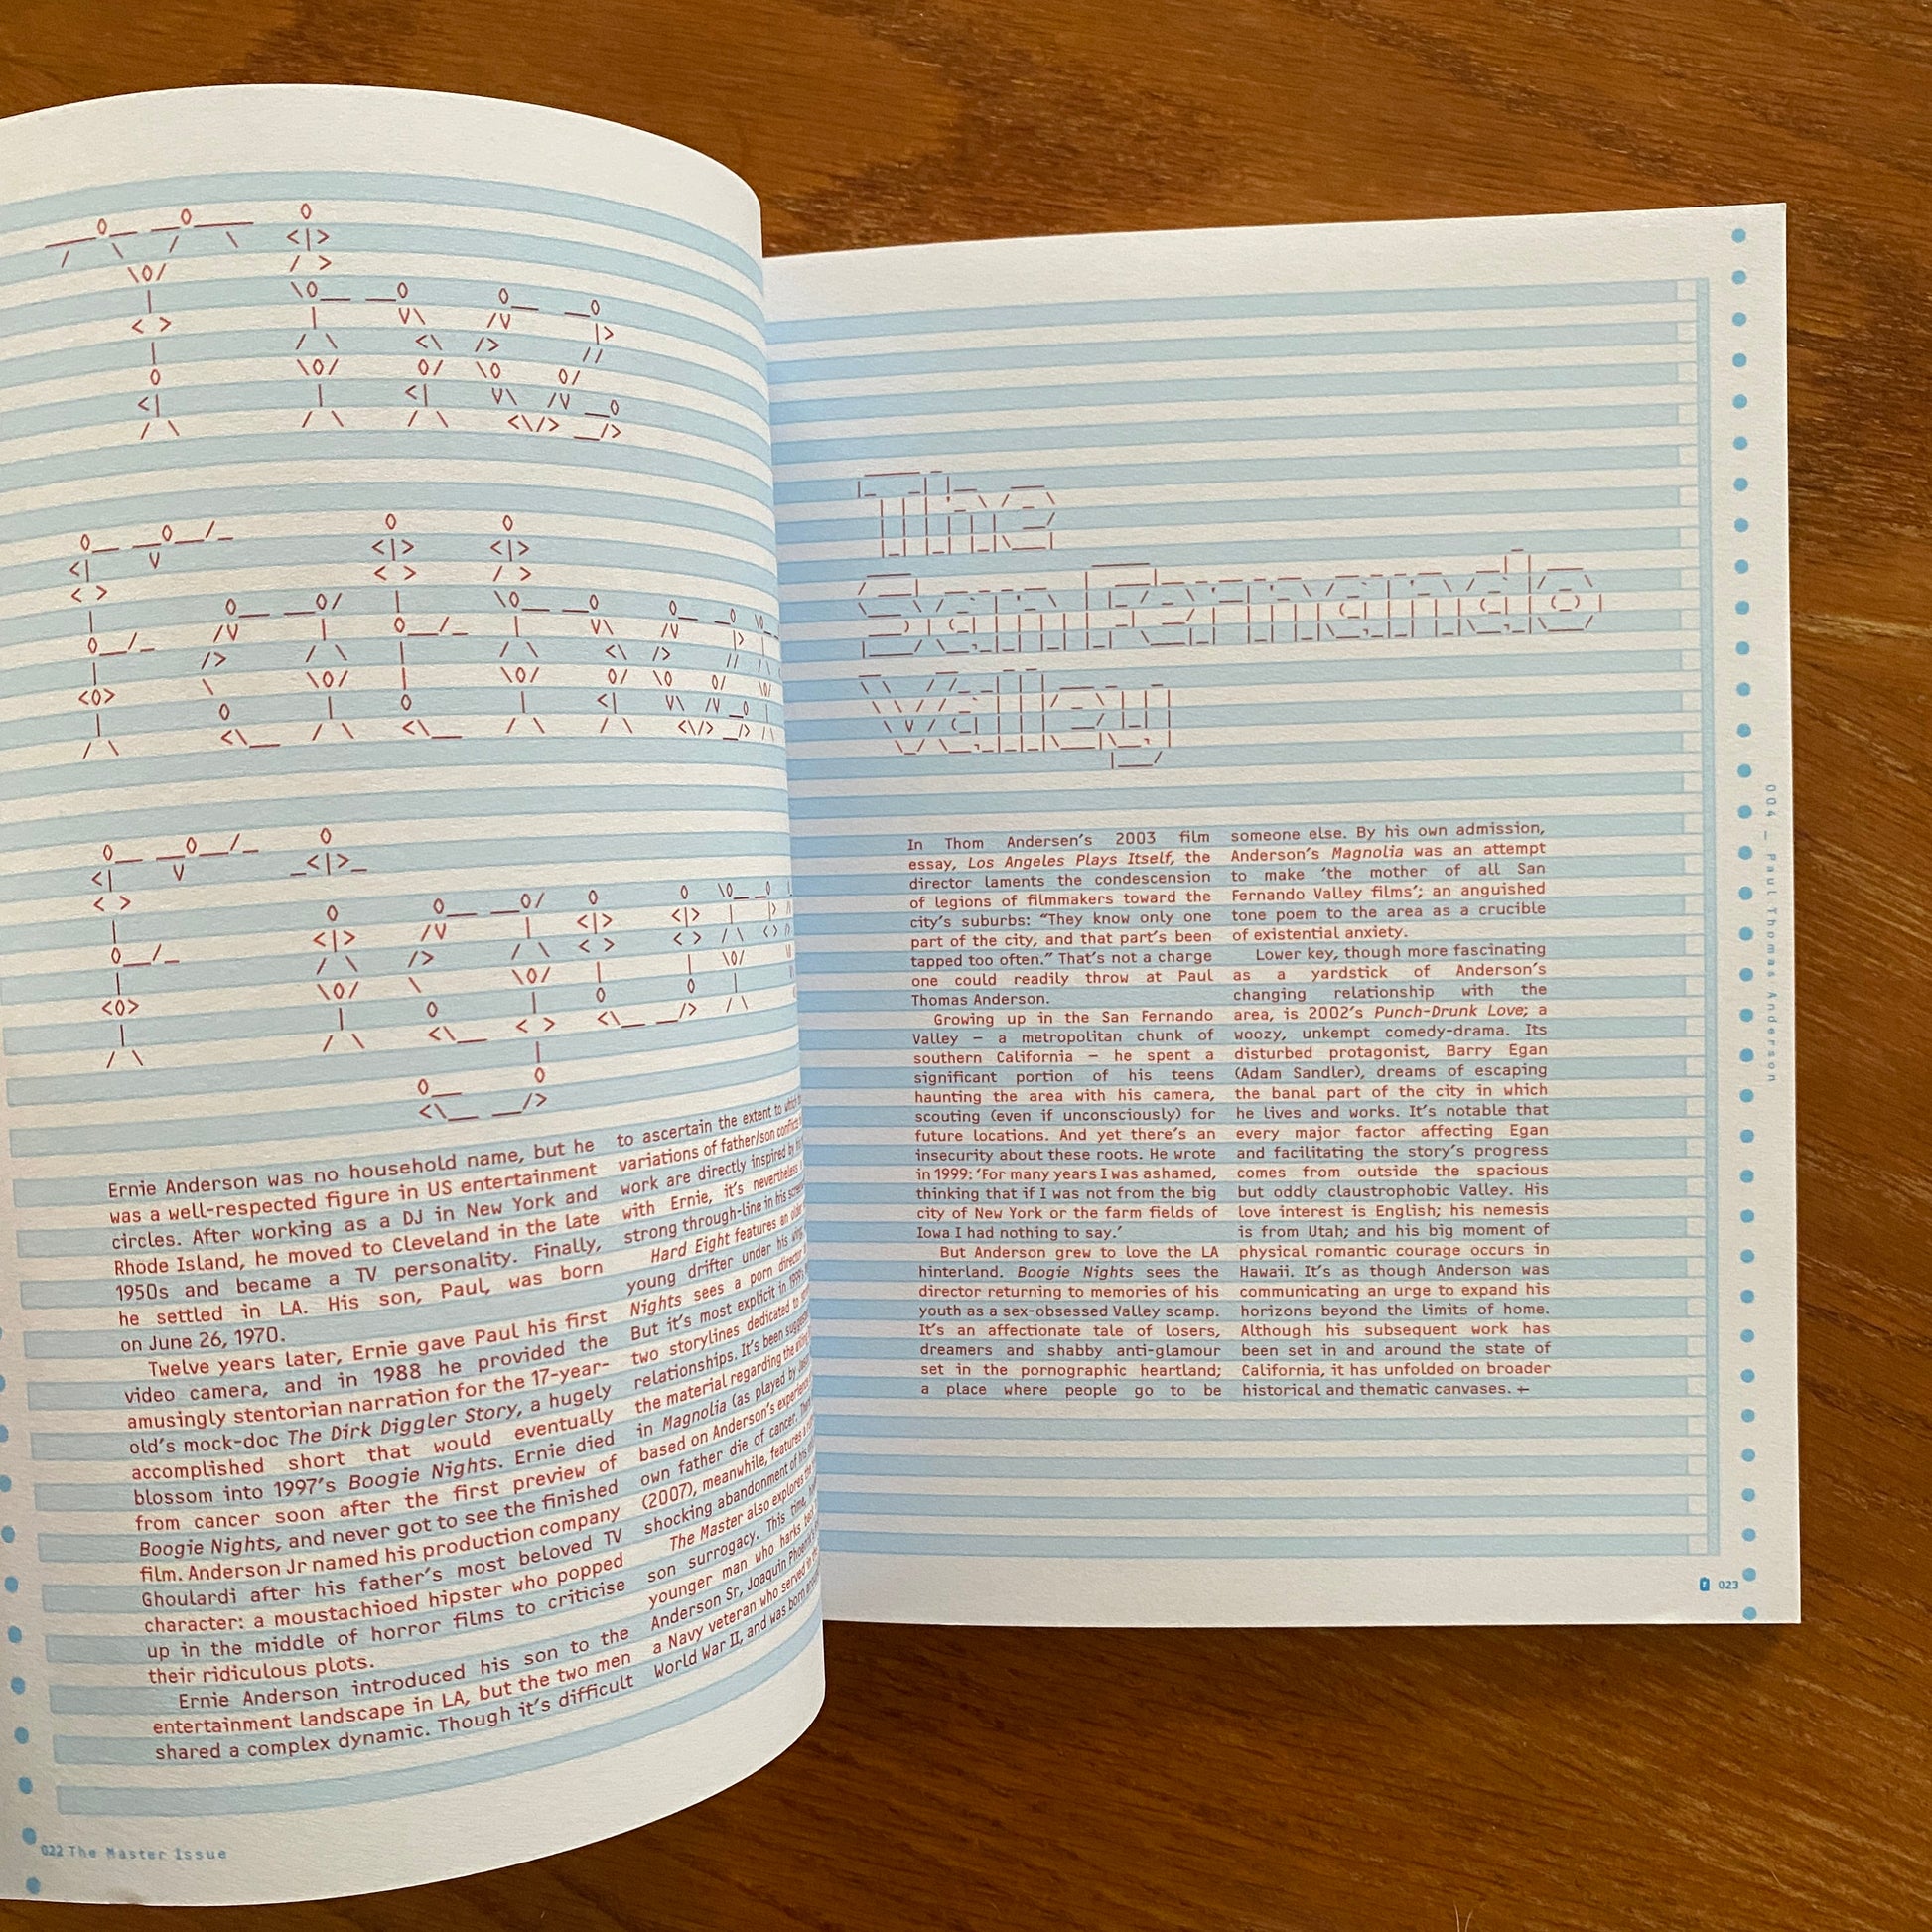 The
Father
Figure
Ernie Anderson was no household name, but he
was a well-respected figure in US entertainment
circles. After working as a DJ in New York and
Rhode Island, he moved to Cleveland in the late
1950s and became a TV personality. Finally,
he settled in LA. His son, Paul, was born
on June 26, 1970.
Twelve years later, Ernie gave Paul his first
video camera, and in 1988 he provided the
amusingly stentorian narration for the 17-year-
old's mock-doc The Dirk Diggler Story, a hugely
accomplished short that would eventually
blossom into 1997's Boogie Nights. Ernie died
from cancer soon after the first preview of
Boogie Nights, and never got to see the finished
film. Anderson Jr named his production company
Ghoulardi after his father's most beloved TV
character: a moustachioed hipster who popped
up in the middle of horror films to criticise
their ridiculous plots.
Ernie Anderson introduced his son to the
entertainment landscape in LA, but the two men
shared a complex dynamic. Though it's difficult
to ascertain the extent to which
variations of father/son conflict
work are directly inspired by
with Ernie, it's nevertheless
strong through-line in his
Hard Eight features an older
young drifter under his wing,
Nights sees a porn director
But it's most explicit in 1999's
two storylines dedicated to
relationships. It's been
the material regarding the
in Magnolia (as played by
based on Anderson's
own father die of cancer.
(2007), meanwhile, features a
shocking abandonment of his
The Master also explores
son surrogacy. This time,
younger man who harks
Anderson Sr, Joaquin
a Navy veteran who served in
World War II, and was born
022 The Master Issue
The
San Fernando
Valley
In Thom Andersen's 2003 film
essay, Los Angeles Plays Itself, the
director laments the condescension
of legions of filmmakers toward the
city's suburbs: “They know only one
part of the city, and that part's been
tapped too often.” That's not a charge
one could readily throw at Paul
Thomas Anderson.
Growing up in the San Fernando
Valley – a metropolitan chunk of
southern California – he spent a
significant portion of his teens
haunting the area with his camera,
scouting (even if unconsciously) for
future locations. And yet there's an
insecurity about these roots. He wrote
in 1999: ‘For many years I was ashamed,
thinking that if I was not from the big
city of New York or the farm fields of
Iowa I had nothing to say.’
But Anderson grew to love the LA
hinterland. Boogie Nights sees the
director returning to memories of his
youth as a sex-obsessed Valley scamp.
It's an affectionate tale of losers,
dreamers and shabby anti-glamour
set in the pornographic heartland;
a place where people go to be
someone else. By his own admission,
Anderson's Magnolia was an attempt
to make ‘the mother of all San
Fernando Valley films’; an anguished
tone poem to the area as a crucible
of existential anxiety.
Lower key, though more fascinating
as a yardstick of Anderson's
changing relationship with the
area, is 2002's Punch-Drunk Love; a
woozy, unkempt comedy-drama. Its
disturbed protagonist, Barry Egan
(Adam Sandler), dreams of escaping
the banal part of the city in which
he lives and works. It's notable that
every major factor affecting Egan
and facilitating the story's progress
comes from outside the spacious
but oddly claustrophobic Valley. His
love interest is English; his nemesis
is from Utah; and his big moment of
physical romantic courage occurs in
Hawaii. It's as though Anderson was
communicating an urge to expand his
horizons beyond the limits of home.
Although his subsequent work has
been set in and around the state of
California, it has unfolded on broader
historical and thematic canvases.
004 – Paul Thomas Anderson
023